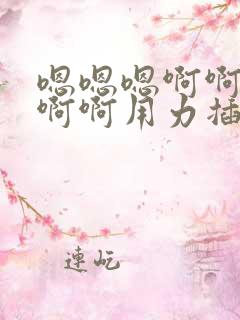 嗯嗯嗯啊啊
啊啊用力插
連屹